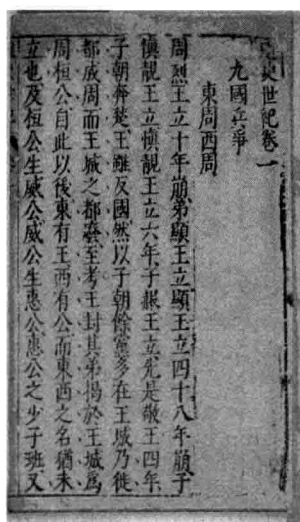 史世紀卷一
九國兵爭
東周西周
周烈王立十年崩弟顯王立顯王立四十八年崩子
慎靚王立慎靚王立六年子赧王立先是敬王四年
子朝奔楚王雖反國然以子朝餘黨多在王城乃徙
都成周而王城之都廢至考王封其弟揭於王城爲
周桓公自此以後東有王西有公而東西之名猶未
立也及桓公生威公威公生惠公惠公之少子班又